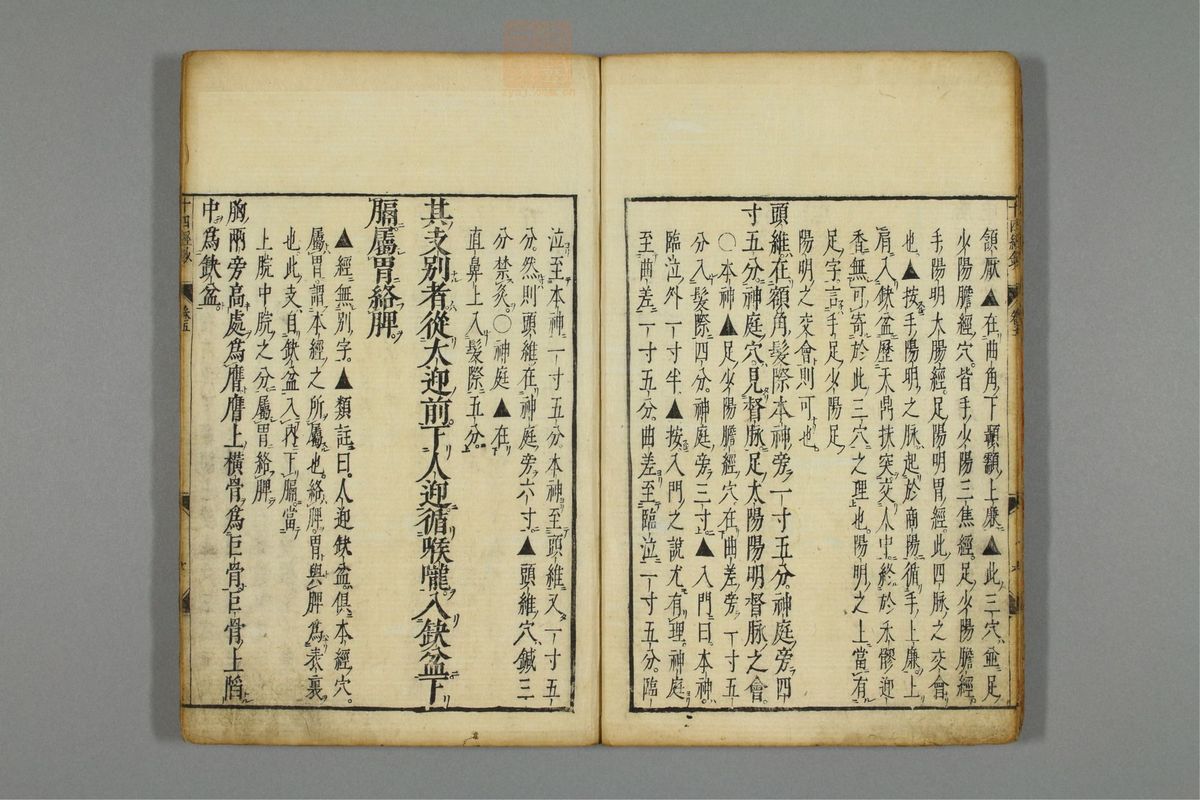 頷厭▲在曲角下顳顬上廉▲此三穴並足
少陽膽經穴皆手少陽三焦經足少陽膽經
手陽明大腸經足陽明胃經此四脉之交會
也▲按手陽明之脉起於商陽循手上廉上
肩入缺盆歷天鼎扶突交人中終於禾髎迎
香無可寄於此三穴之理也陽明之上當有
足字言手足少陽足
陽明之交會則可也
頭維在額角髮際本神旁一寸五分神庭旁四
寸五分神庭穴見督脉足太陽陽明督脉之會
○本神▲足少陽膽經穴在曲差旁一寸五
分入髮際四分神庭旁三寸▲入門曰本神
臨泣外一寸半▲按入門之說尤有理神庭
至曲差一寸五分曲差至臨泣一寸五分臨
泣至本神一寸五分本神至頭維又一寸五
分然則頭維在神庭旁六寸▲頭維穴鍼三
分禁灸○神庭▲在
直鼻上入髮際五分
其支別者從大迎前下人迎循喉嚨入缺盆下
膈屬胃絡脾
▲經無別字▲類註曰人迎缺盆俱本經穴
屬胃謂本經之所屬也絡脾胃與脾爲表裏
也此支自缺盆入內下膈當
上脘中脘之分屬胃絡脾
胸兩旁高處爲膺膺上橫骨爲巨骨巨骨上陷
中爲缺盆